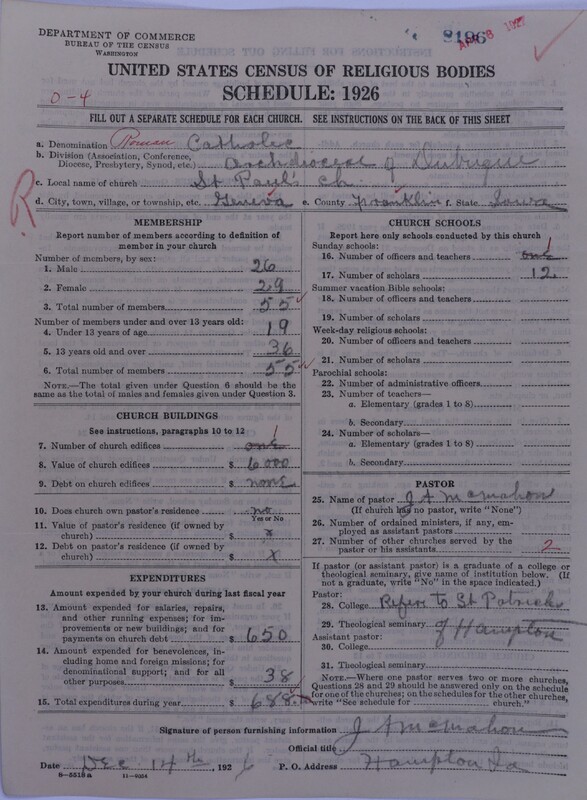 DEPARTMENT OF COMMERCE
BUREAU OF THE CENSUS
WASHINGTON
8196
APR 8 1927
UNITED STATES CENSUS OF RELIGIOUS BODIES
SCHEDULE: 1926
0-4
FILL OUT A SEPARATE SCHEDULE FOR EACH CHURCH. SEE INSTRUCTIONS ON THE BACK OF THIS SHEET
a. Denomination Roman Catholic
b. Division (Association, Conference, Diocese, Presbytery, Synod, etc.) Archdiocese of Dubuque
c. Local name of church St Paul's ch
R
d. City, town, village, or township, etc. Geneva e. County Franklin f. State Iowa
MEMBERSHIP
Report number of members according to definition of member in your church
Number of members, by sex:
1. Male 26
2. Female 29
3. Total number of members 55
Number of members under and over 13 years old:
4. Under 13 years of age 19
5. 13 years old and over 36
6. Total number of members 55
NOTE.—The total given under Question 6 should be the same as the total of males and females given under Question 3.
CHURCH BUILDINGS
See instructions, paragraphs 10 to 12
7. Number of church edifices one 1
8. Value of church edifices $ 6,000
9. Debt on church edifices $ none
10. Does church own pastor's residence no
Yes or No
11. Value of pastor's residence (if owned by church) $ x
12. Debt on pastor's residence (if owned by church) $ x
EXPENDITURES
Amount expended by your church during last fiscal year
13. Amount expended for salaries, repairs, and other running expenses; for improvements or new buildings; and for payments on church debt $ 650
14. Amount expended for benevolences, including home and foreign missions; for denominational support; and for all other purposes $ 38
15. Total expenditures during year $ 688
CHURCH SCHOOLS
Report here only schools conducted by this church
Sunday schools:
16. Number of officers and teachers one 1
17. Number of scholars 12
Summer vacation Bible schools:
18. Number of officers and teachers
19. Number of scholars
Week-day religious schools:
20. Number of officers and teachers
21. Number of scholars
Parochial schools:
22. Number of administrative officers
23. Number of teachers—
a. Elementary (grades 1 to 8)
b. Secondary
24. Number of scholars—
a. Elementary (grades 1 to 8)
b. Secondary
PASTOR
25. Name of pastor J A McMahon
(If church has no pastor, write "None")
26. Number of ordained ministers, if any, employed as assistant pastors
27. Number of other churches served by the pastor or his assistants 2
If pastor (or assistant pastor) is a graduate of a college or theological seminary, give name of institution below. (If not a graduate, write "No" in the space indicated.)
Pastor:
28. College Refer to St Patrick
29. Theological seminary of Hampton
Assistant pastor:
30. College
31. Theological seminary
NOTE.—Where one pastor serves two or more churches, Questions 28 and 29 should be answered only on the schedule for one of the churches; on the schedules for the other churches, write "See schedule for church."
Signature of person furnishing information J A McMahon
Official title
Date Dec 14th, 1926 P. O. Address Hampton Ia
8-5519a 11-9254